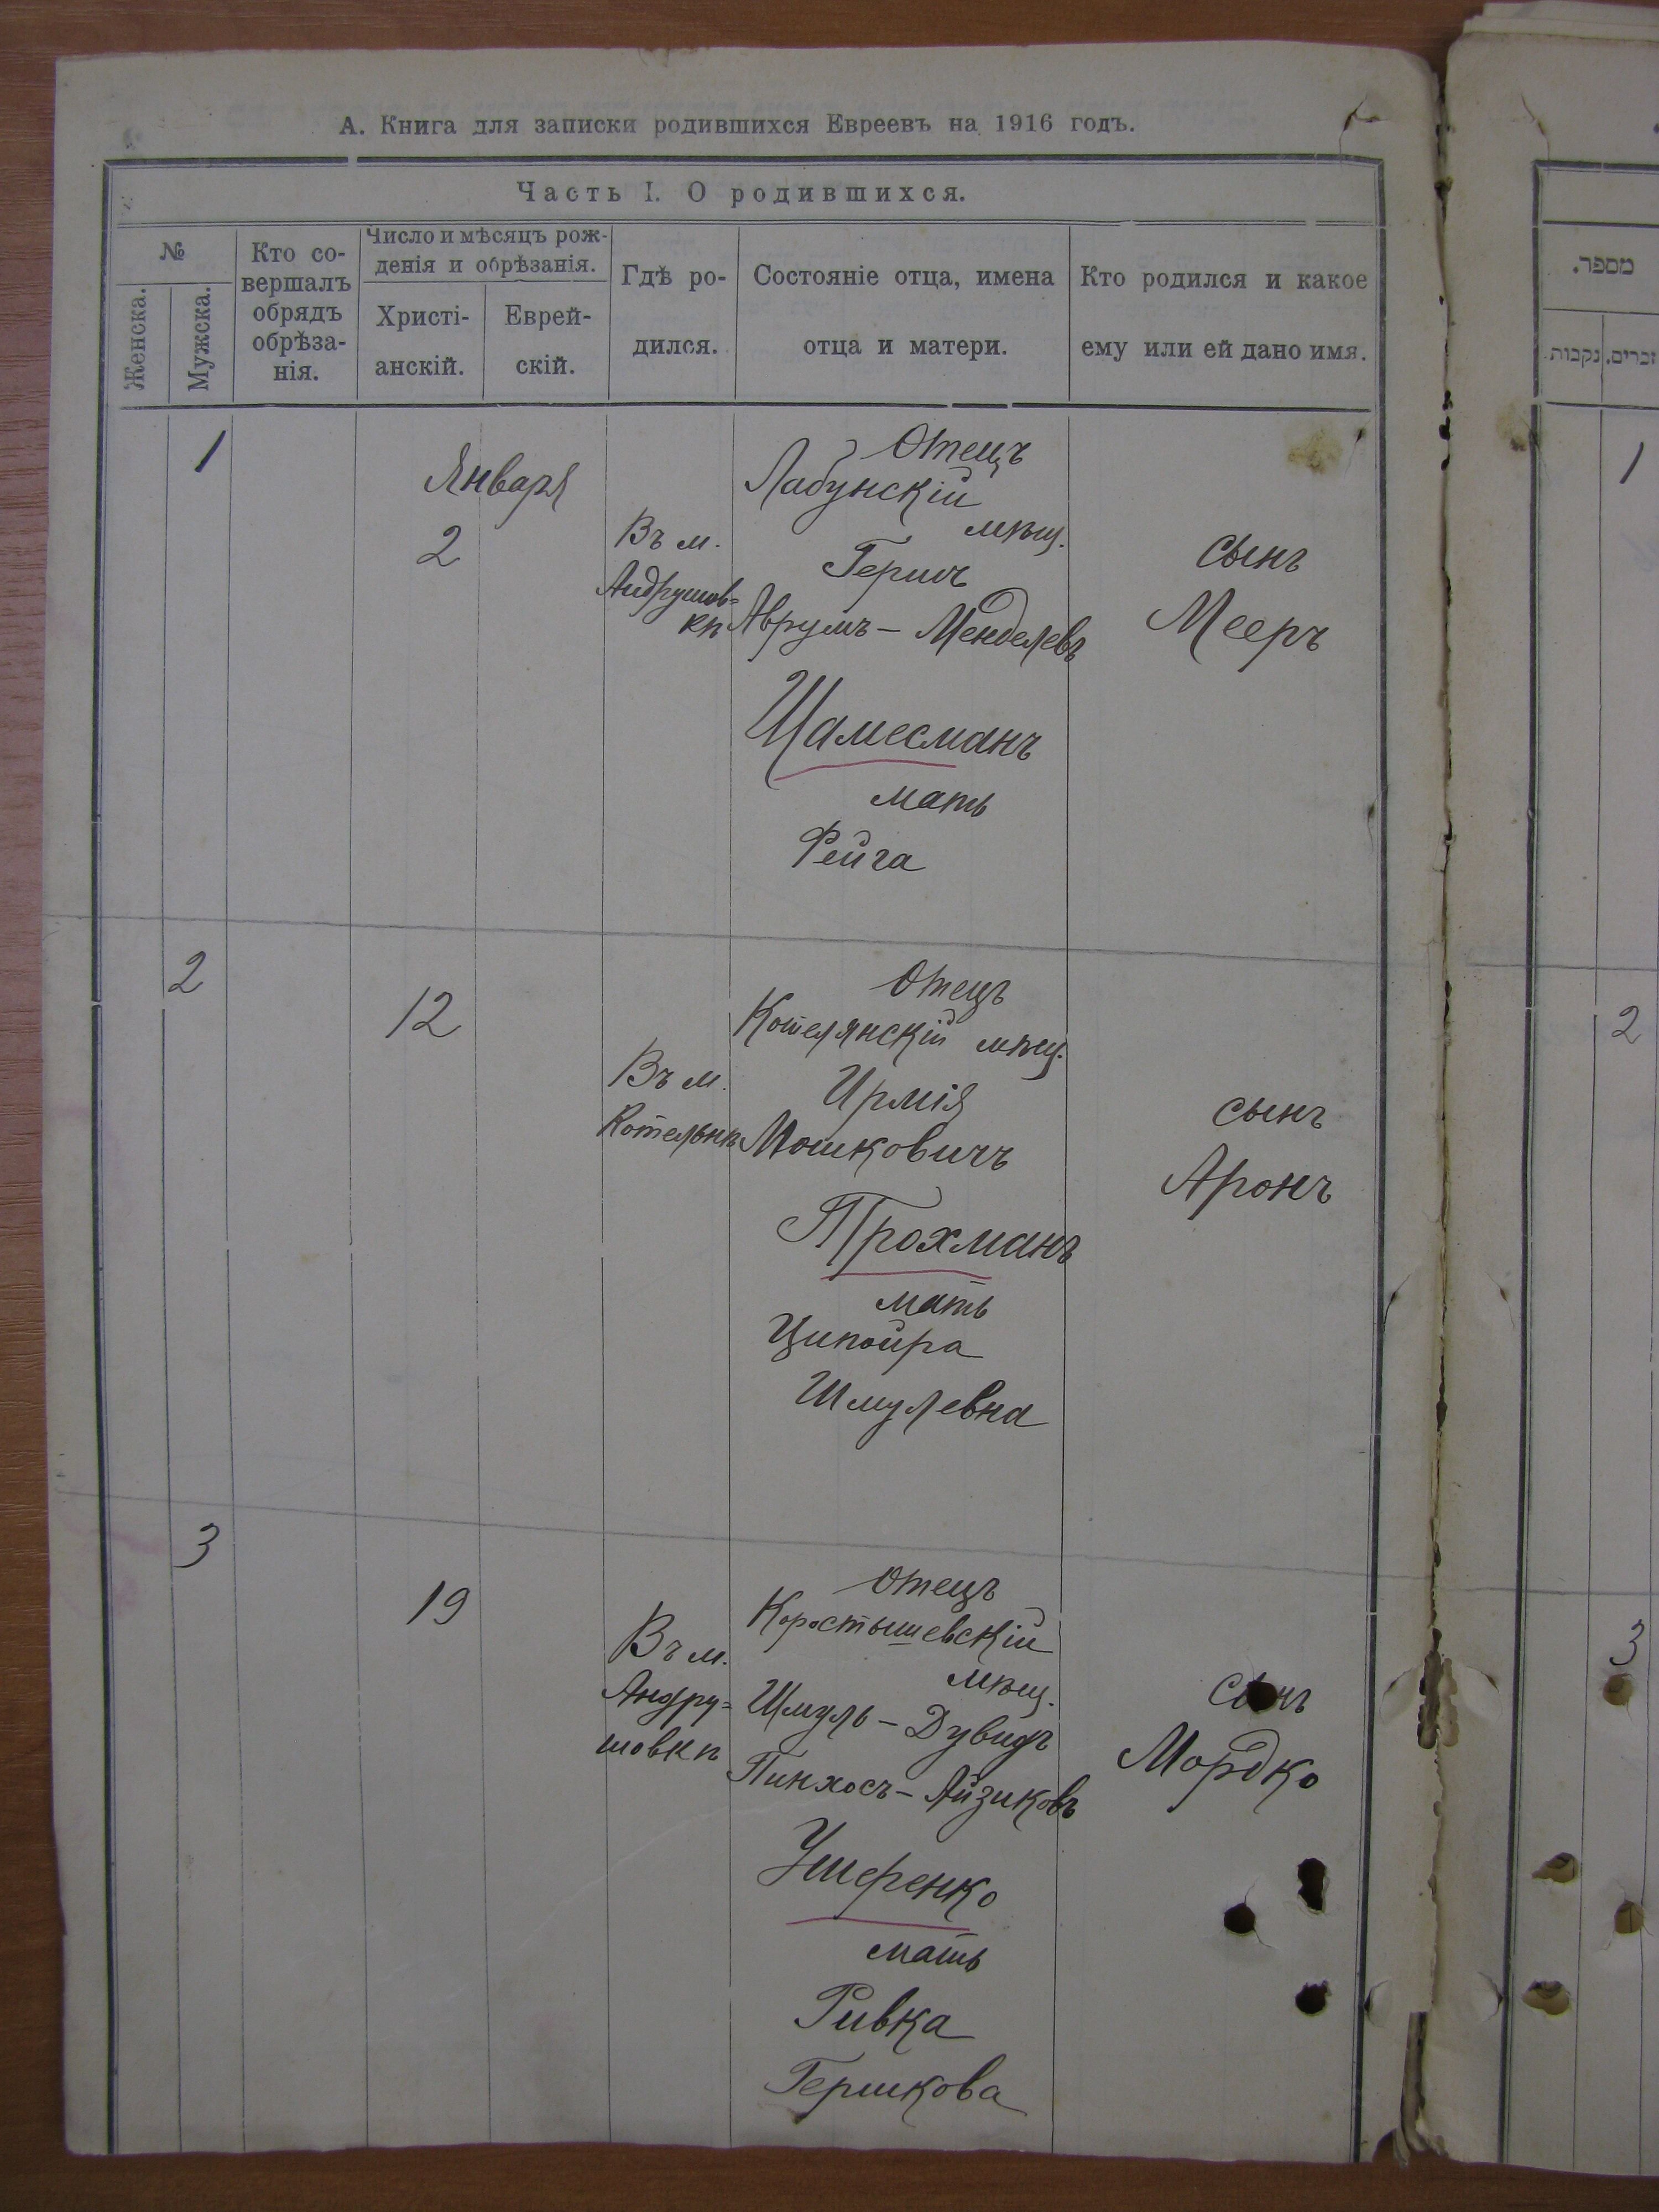 А. Книга для записки родившихся Евреевъ на 1916 годъ.
Часть I. О родившихся.
№
Женска.
Мужска.
Кто со-
вершалъ
обрядъ
обрѣза-
нія.
Число и мѣсяцъ рож-
денія и обрѣзанія.
Христі-
анскій.
Еврей-
скій.
Гдѣ ро-
дился.
Состояніе отца, имена
отца и матери.
Кто родился и какое
ему или ей дано имя.
1
Января
2
Въ м.
Андрушов-
кѣ
Отецъ
Лабунскій
мѣщ.
Гершъ
Аврумъ – Менделевъ
Шамесманъ
мать
Фейга
сынъ
Мееръ
2
12
Въ м.
Котельнѣ
Отецъ
Котелянскій мѣщ.
Ирмія
Мошковичъ
Трохманъ
мать
Ципойра
Шмулевна
сынъ
Аронъ
3
19
Въ м.
Андру-
шовкѣ
Отецъ
Коростышевскій
мѣщ.
Шмуль – Дувидъ
Пинхосъ – Айзиковъ
Ушеренко
мать
Ривка
Гершкова
сынъ
Мордко
מספר.
זכרים.
נקבות
1
2
3